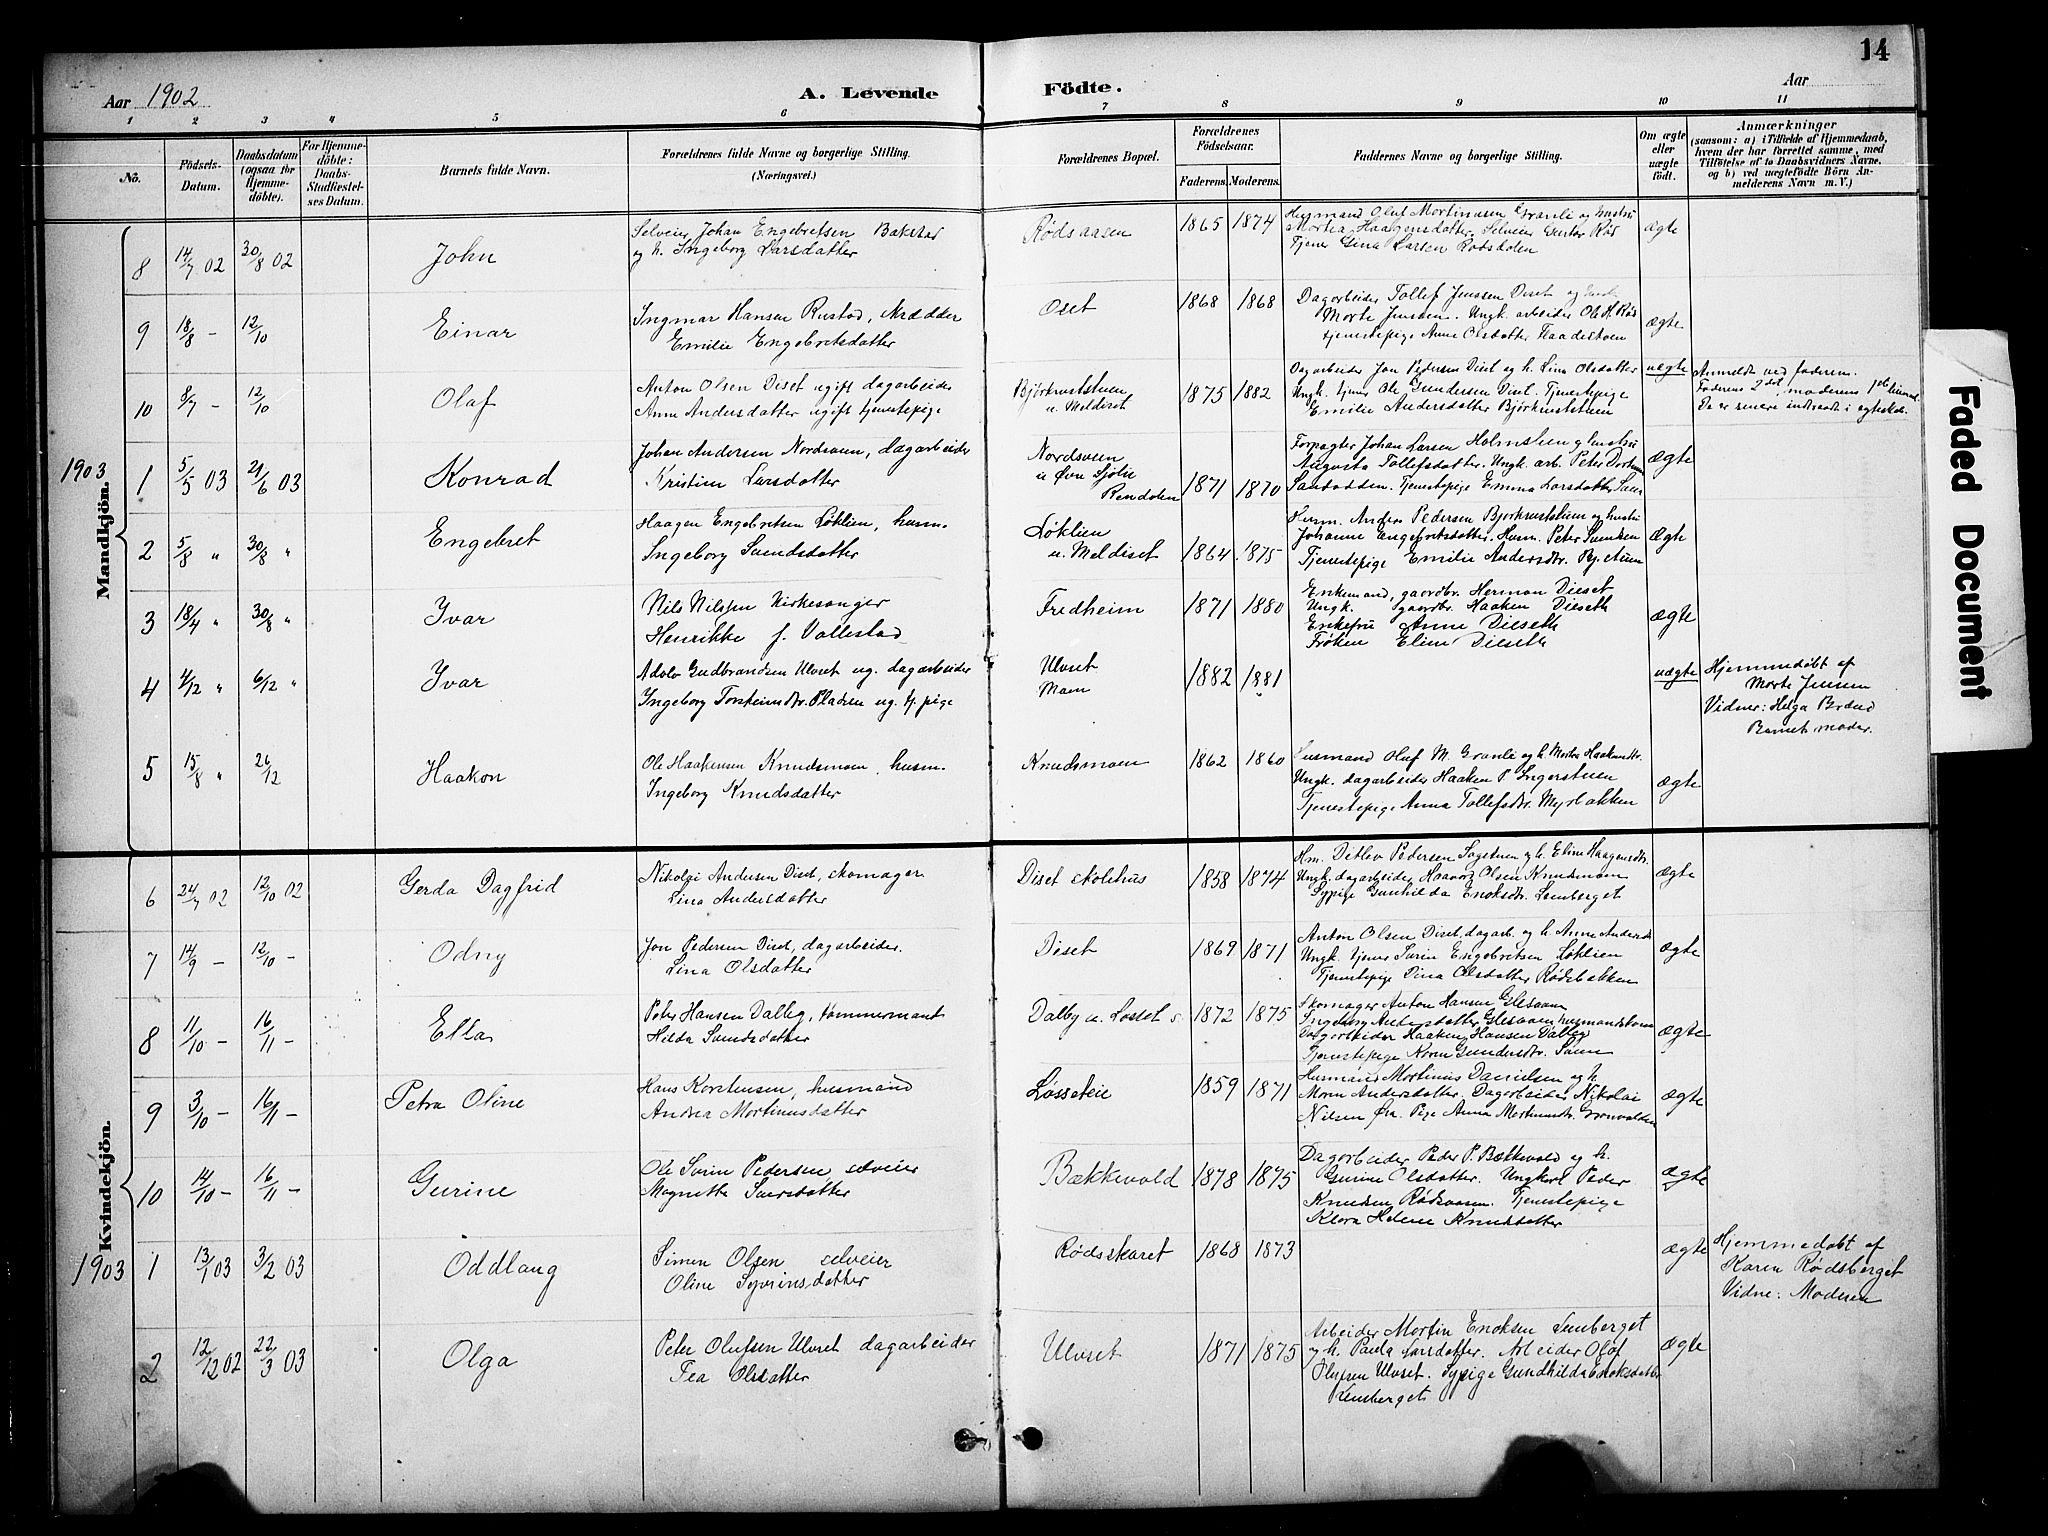 14
Aar 1902
A. Levende Födte.
Aar
1 2 3 4 5 6 7 8 9 10 11
No.
Födsels-Datum.
Daabsdatum (ogsaa for Hjemmedöbte).
For Hjemmedöbte: Daabs-Stadfæstelses Datum.
Barnets fulde Navn.
Forældrenes fulde Navne og borgerlige Stilling. (Næringsvei.)
Forældrenes Bopæl.
Forældrenes Födselsaar.
Faderens. Moderens.
Faddernes Navne og borgerlige Stilling.
Om ægte eller uægte födt.
Anmærkninger
(saasom: a) i Tilfælde af Hjemmedaab, hvem der har forrettet samme, med Tilföielse af to Daabsvidners Navne, og b) ved uægtefödte Börn Anmelderens Navn m. V.)
Mandkjön.
8 14/7 02 30/8 02 John
Selveier Johan Engebretsen Bakstad
og h. Ingeborg Larsdatter
Rødsaasen 1865 1874
Husmand Oluf Martinusen Granli og hustru
Martea Haagensdatter. Selveier Rød
Tjener Gina Larsen Rødsdalen
ægte
9 18/8 – 12/10 Einar
Ingmar Hansen Rustad, skrædder
Emilie Engebretsdatter
Oset 1868 1868
Dagarbeider Tollef Jenssen Diset og
Marte Jenssen. Ungk. arbeider Ole H. Rød
tjenestepige Anne Olsdatter Haadestuen
ægte
10 8/7 – 12/10 Olaf
Anton Olsen Diset ugift dagarbeider
Anne Andersdatter ugift tjenestepige
Bjørkrutstuen
u. Meldiset
1875 1882
Dagarbeider Jon Pedersen Diset og h. Lina Olsdatter
Ungk. tjener Ole Gundersen Diset. Tjenestepige
Emilie Andersdatter Bjørkrutstuen
uægte
Anmeldt ved faderen.
Faderens 2det, moderens 1ste
De er senere indtraadt i egteskab.
1903
1 5/5 03 29/6 03 Konrad
Johan Andersen Nordsveen, dagarbeider
Kristine Larsdatter
Nordsveen
u Øvre Sjølie
Rendalen
1871 1870
Forpagter Johan Larsen Holmstuen og hustru
Augusta Tollefsdatter. Ungk. arb. Peter
Tjenestepige Emma Larsdatter
ægte
2 5/8 " 30/8 " Engebret
Haagen Engebretsen Løklien, husm.
Ingeborg Svendsdatter
Løklien
u. Meldiset
1864 1875
Husm. Anders Pedersen Bjørkrutstuen og hustru
Johanne Engebretsdatter. Husm. Peter
Tjenestepige Emilie Andersdtr. Bj.
ægte
3 18/4 " 30/8 " Ivar
Nils Nilssen Kirkesanger
Henrikke f. Vallestad
Fredheim 1871 1880
Enkemand, gaardbr. Herman Dieset
Ungk. gaardbr. Haaken Dieseth
Enkefru Anne Dieseth
Frøken Eline Dieseth
ægte
4 4/12 " 6/12 " Ivar
Adolv Gudbrandsen Ulvset ug. dagarbeider
Ingeborg Torsteinsdtr. Pladsen ug. tj. pige
Ulvset
Moen
1882 1881
uægte
Hjemmedøbt af
Marte Jensen
Vidner: Helga
Barnets moder.
5 15/8 " 26/12 Haakon
Ole Haakensen Knudsmoen, husm.
Ingeborg Knudsdatter
Knudsmoen 1862 1860
Husmand Olaf M. Granli og h. Martea Haakensdtr.
Ungk. dagarbeider Haaken P. Ingerstuen
Tjenestepige Anna Tollefsdtr. Myrbakken
ægte
Kvindekjön.
6 24/7 02 12/10 02 Gerda Dagfrid
Nikolai Andersen Diset, skomager
Lina Andersdatter
Diset skolehus 1858 1874
Hm. Ditlev Pedersen Sagstuen og h. Eline Haagensdtr.
Ungk. dagarbeider Haavard Olsen Knudsmoen
Sypige Gunhilda Enoksdtr. Lemberget
ægte
7 14/9 – 12/10 – Odny
Jon Pedersen Diset, dagarbeider.
Lina Olsdatter
Diset 1869 1871
Anton Olsen Diset, dagarb. og h. Anne Andersdtr
Ungk. tjener Sørin Engebretsen Løklien
Tjenestepige Dina Olsdatter Rødsbakken
ægte
8 11/10 – 16/11 – Ella
Peter Hansen Dalby, tømmermand
Hilda Svendsdatter
Dalby u. Losset 1872 1875
Skomager Anton Hansen Glesaaen
Ingeborg Andersdatter Glesaaen husmandskone
Dagarbeider Haaken Hansen Dalby
Tjenestepige Karen Gundersdtr.
ægte
9 3/10 – 16/11 – Petra Oline
Hans Karstensen, husmand
Andrea Martinusdatter
Løsseteie 1859 1871
Husmand Martinus Danielsen og h.
Maren Andersdatter. Dagarbeider Nikolai
Nilsen Øra. Pige Anna Martinusdtr. Grønvolden
ægte
10 14/10 – 16/11 – Gurine
Ole Sørin Pedersen selveier
Magnetha Svensdatter
Bækkevold 1878 1875
Dagarbeider Peder P. Bækkevold og h.
Gurine Olsdatter. Ungkarl Peder
Knudsen Rødsaasen. Tjenestepige
Klara Helene Knudsdatter
ægte
1903
1 13/1 03 3/2 03 Oddlaug
Simen Olsen selveier
Oline Syverinsdatter
Rødsskaret 1868 1873
ægte
Hjemmedøbt af
Karen Rødsberget
Vidne: Moderen
2 12/12 02 22/3 03 Olga
Peter Olufsen Ulvset dagarbeider
Tea Olsdatter
Ulvset 1871 1875
Arbeider Martin Enoksen Lemberget
og h. Paula Larsdatter. Arbeider Olof
Olufsen Ulvset. Sypige Gundhilda Enoksdatter
Lemberget
ægte
Faded Document